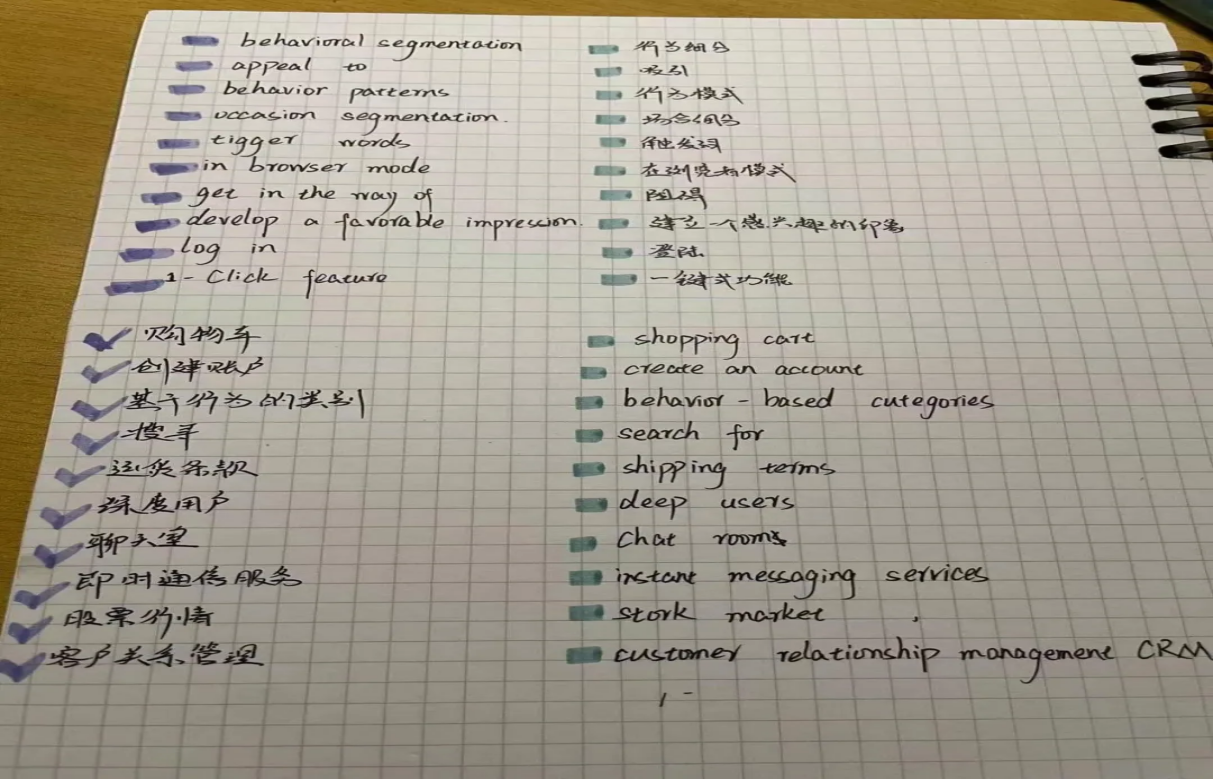 behavioral segmentation 行为细分
appeal to 吸引
behavior patterns 行为模式
occasion segmentation. 场合细分
tigger words 触发词
in browser mode 在浏览器模式
get in the way of 阻碍
develop a favorable impression. 建立一个感兴趣的印象
Log in 登陆
1-Click feature 一键式功能
购物车 shopping cart
创建账户 create an account
基于行为的类别 behavior-based cutegories
搜寻 search for
运货条款 shipping terms
深度用户 deep users
聊天室 Chat rooms
即时通信服务 instant messaging services
股票行情 stork market
客户关系管理 customer relationship management CRM